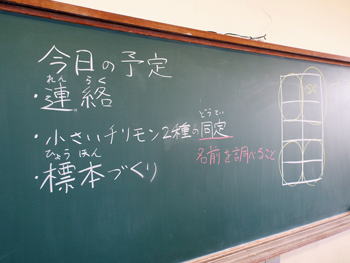 今日の予定
れん らく
・連絡
どうてい
・小さいチリモン2種の同定
名前を調べること
ひょうほん
・標本づくり